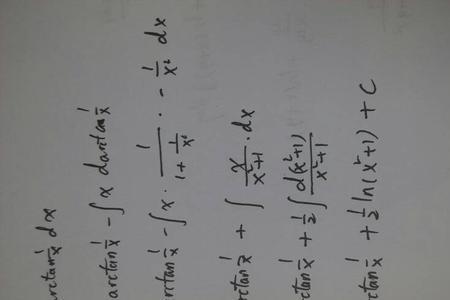 arctan 1/x dx
arctan 1/x - ∫ x d arctan 1/x
rctan 1/x - ∫ x · 1/(1 + 1/x²) · - 1/x² dx
rctan 1/x + ∫ x/(x²+1) · dx
rctan 1/x + 1/2 ∫ d(x²+1)/(x²+1)
rctan 1/x + 1/2 ln(x²+1) + C